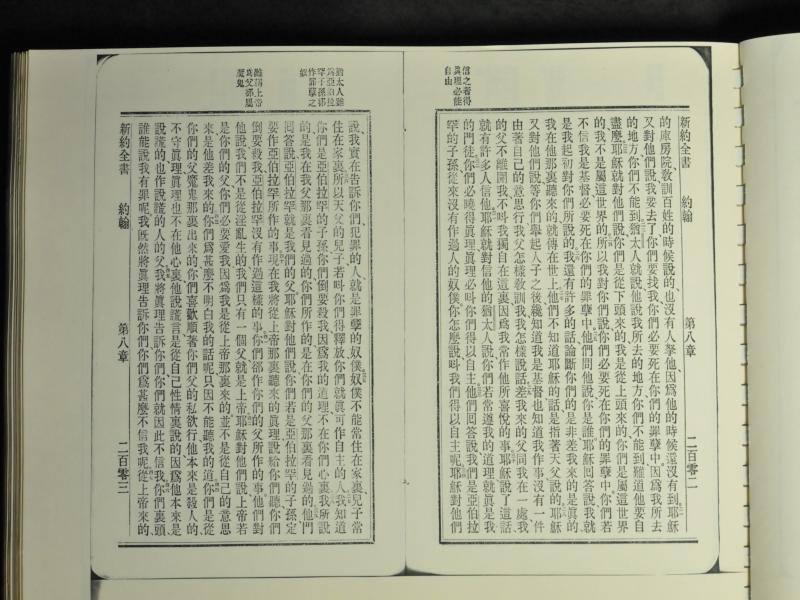 信之者得
眞理必能
自由
新約全書　約翰　第八章　二百零二
的庫房院教訓百姓的時候說的也沒有人拏他因爲他的時候還沒有到耶穌
又對他們說我要去了你們要找我你們必要死在你們的罪孽中因爲我所去
的地方你們不能到猶太人就說他說我所去的地方你們不能到難道他要自
盡麼耶穌就對他們說你們是從下頭來的我是從上頭來的你們是屬這世界
的我不是屬這世界的所以我對你們說你們必要死在你們的罪孽中你們若
不信我是基督必要死在你們的罪孽中他們問他說你是誰耶穌回答說我就
是我起初對你們所說的我還有許多的話論斷你們的是非差我來的是眞的
我在他那裏聽來的就傳在世上他們不知道耶穌的話是指著天父說的耶穌
又對他們說等你們舉起人子之後纔知道我是基督也知道我作事沒有一件
由著自己的意思行我父怎樣教訓我我怎樣說話差我來的父同我在一處我
的父不離開我不呌我獨自在這裏因爲我常作他所喜悅的事耶穌說了這話
就有許多人信他耶穌就對信他的猶太人說你們若常遵我的道理就眞是我
的門徒你們必曉得眞理眞理必呌你們得以自主他們回答說我們是亞伯拉
罕的子孫從來沒有作過人的奴僕你怎麼說呌我們得以自主呢耶穌對他們
猶太人雖
爲亞伯拉
罕子孫卻
作罪孽之
奴
雖稱上帝
爲父卻屬
魔鬼
說我實在告訴你們犯罪的人就是罪孽的奴僕奴僕不能常住在家裏兒子常
住在家裏所以天父的兒子若呌你們得釋放你們就眞可作自主的人我知道
你們是亞伯拉罕的子孫你們倒要殺我因爲我的道理不在你們心裏我所說
的是我在我父那裏看見過的你們所作的是在你們的父那裏看見過的他們
回答說亞伯拉罕就是我們的父耶穌對他們說你們若是亞伯拉罕的子孫定
要作亞伯拉罕所作的事現在我將從上帝那裏聽來的眞理說給你們聽你們
倒要殺我亞伯拉罕沒有作過這樣的事你們卻作你們的父所作的事他們對
他說我們不是從淫亂生的我們只有一個父就是上帝耶穌對他們說上帝若
是你們的父你們必要愛我因爲我是從上帝那裏來的並不是從自己的意思
來是他差我來的你們爲甚麼不明白我的話呢只因不能聽我的道你們是從
你們的父魔鬼那裏出來的你們喜歡順著你們父的私欲行他本來是殺人的
不守眞理眞理也不在他心裏他說謊言是從自己性情裏說的因爲他本來是
說謊的也作說謊的人的父我將眞理告訴你們你們就因此不信我你們裏頭
誰能說我有罪呢我旣然將眞理告訴你們你們爲甚麼不信我呢從上帝來的
新約全書　約翰　第八章　二百零三